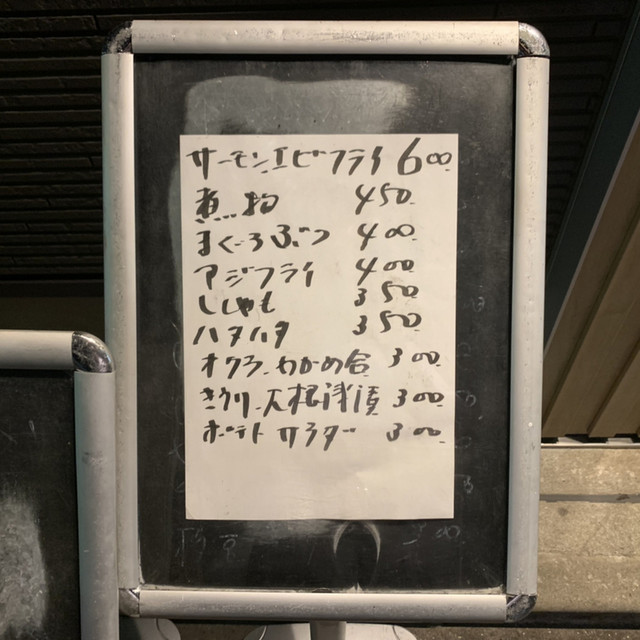 サーモンエビフライ 600.
煮 450.
まぐろぶつ 400.
アジフライ 400.
ししゃも 350.
ハタハタ 350.
オクラ わかめ合 300.
きうり 大根浅漬 300.
ポテトサラダー 300.